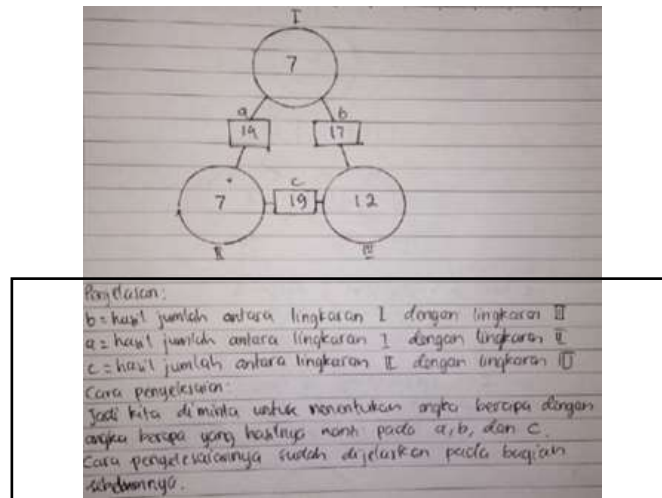 I
7
a
b
14
17
c
7
19
12
II
III
Penjelasan:
b = hasil jumlah antara lingkaran I dengan lingkaran III
a = hasil jumlah antara lingkaran I dengan lingkaran II
c = hasil jumlah antara lingkaran II dengan lingkaran III
Cara penyelesaian:
Jadi kita diminta untuk menentukan angka berapa dengan
angka berapa yang hasilnya nanti pada a, b, dan c.
Cara penyelesaiannya sudah dijelaskan pada bagian
sebelumnya.